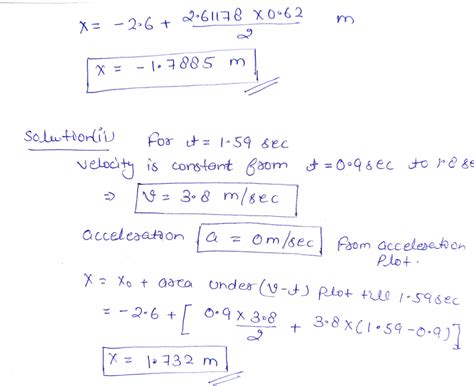 x = -2.6 + 2.61178 x 0.62 / 2 m
x = -1.7885 m
Solution(ii) For t = 1.59 sec
velocity is constant from t = 0.9 sec to 1.8 se
⇒ v = 3.8 m/sec
acceleration a = 0 m/sec from acceleration
Plot.
x = x₀ + area under (v-t) plot till 1.59 sec
= -2.6 + [ 0.9 x 3.8 / 2 + 3.8 x (1.59 - 0.9) ]
x = 1.732 m